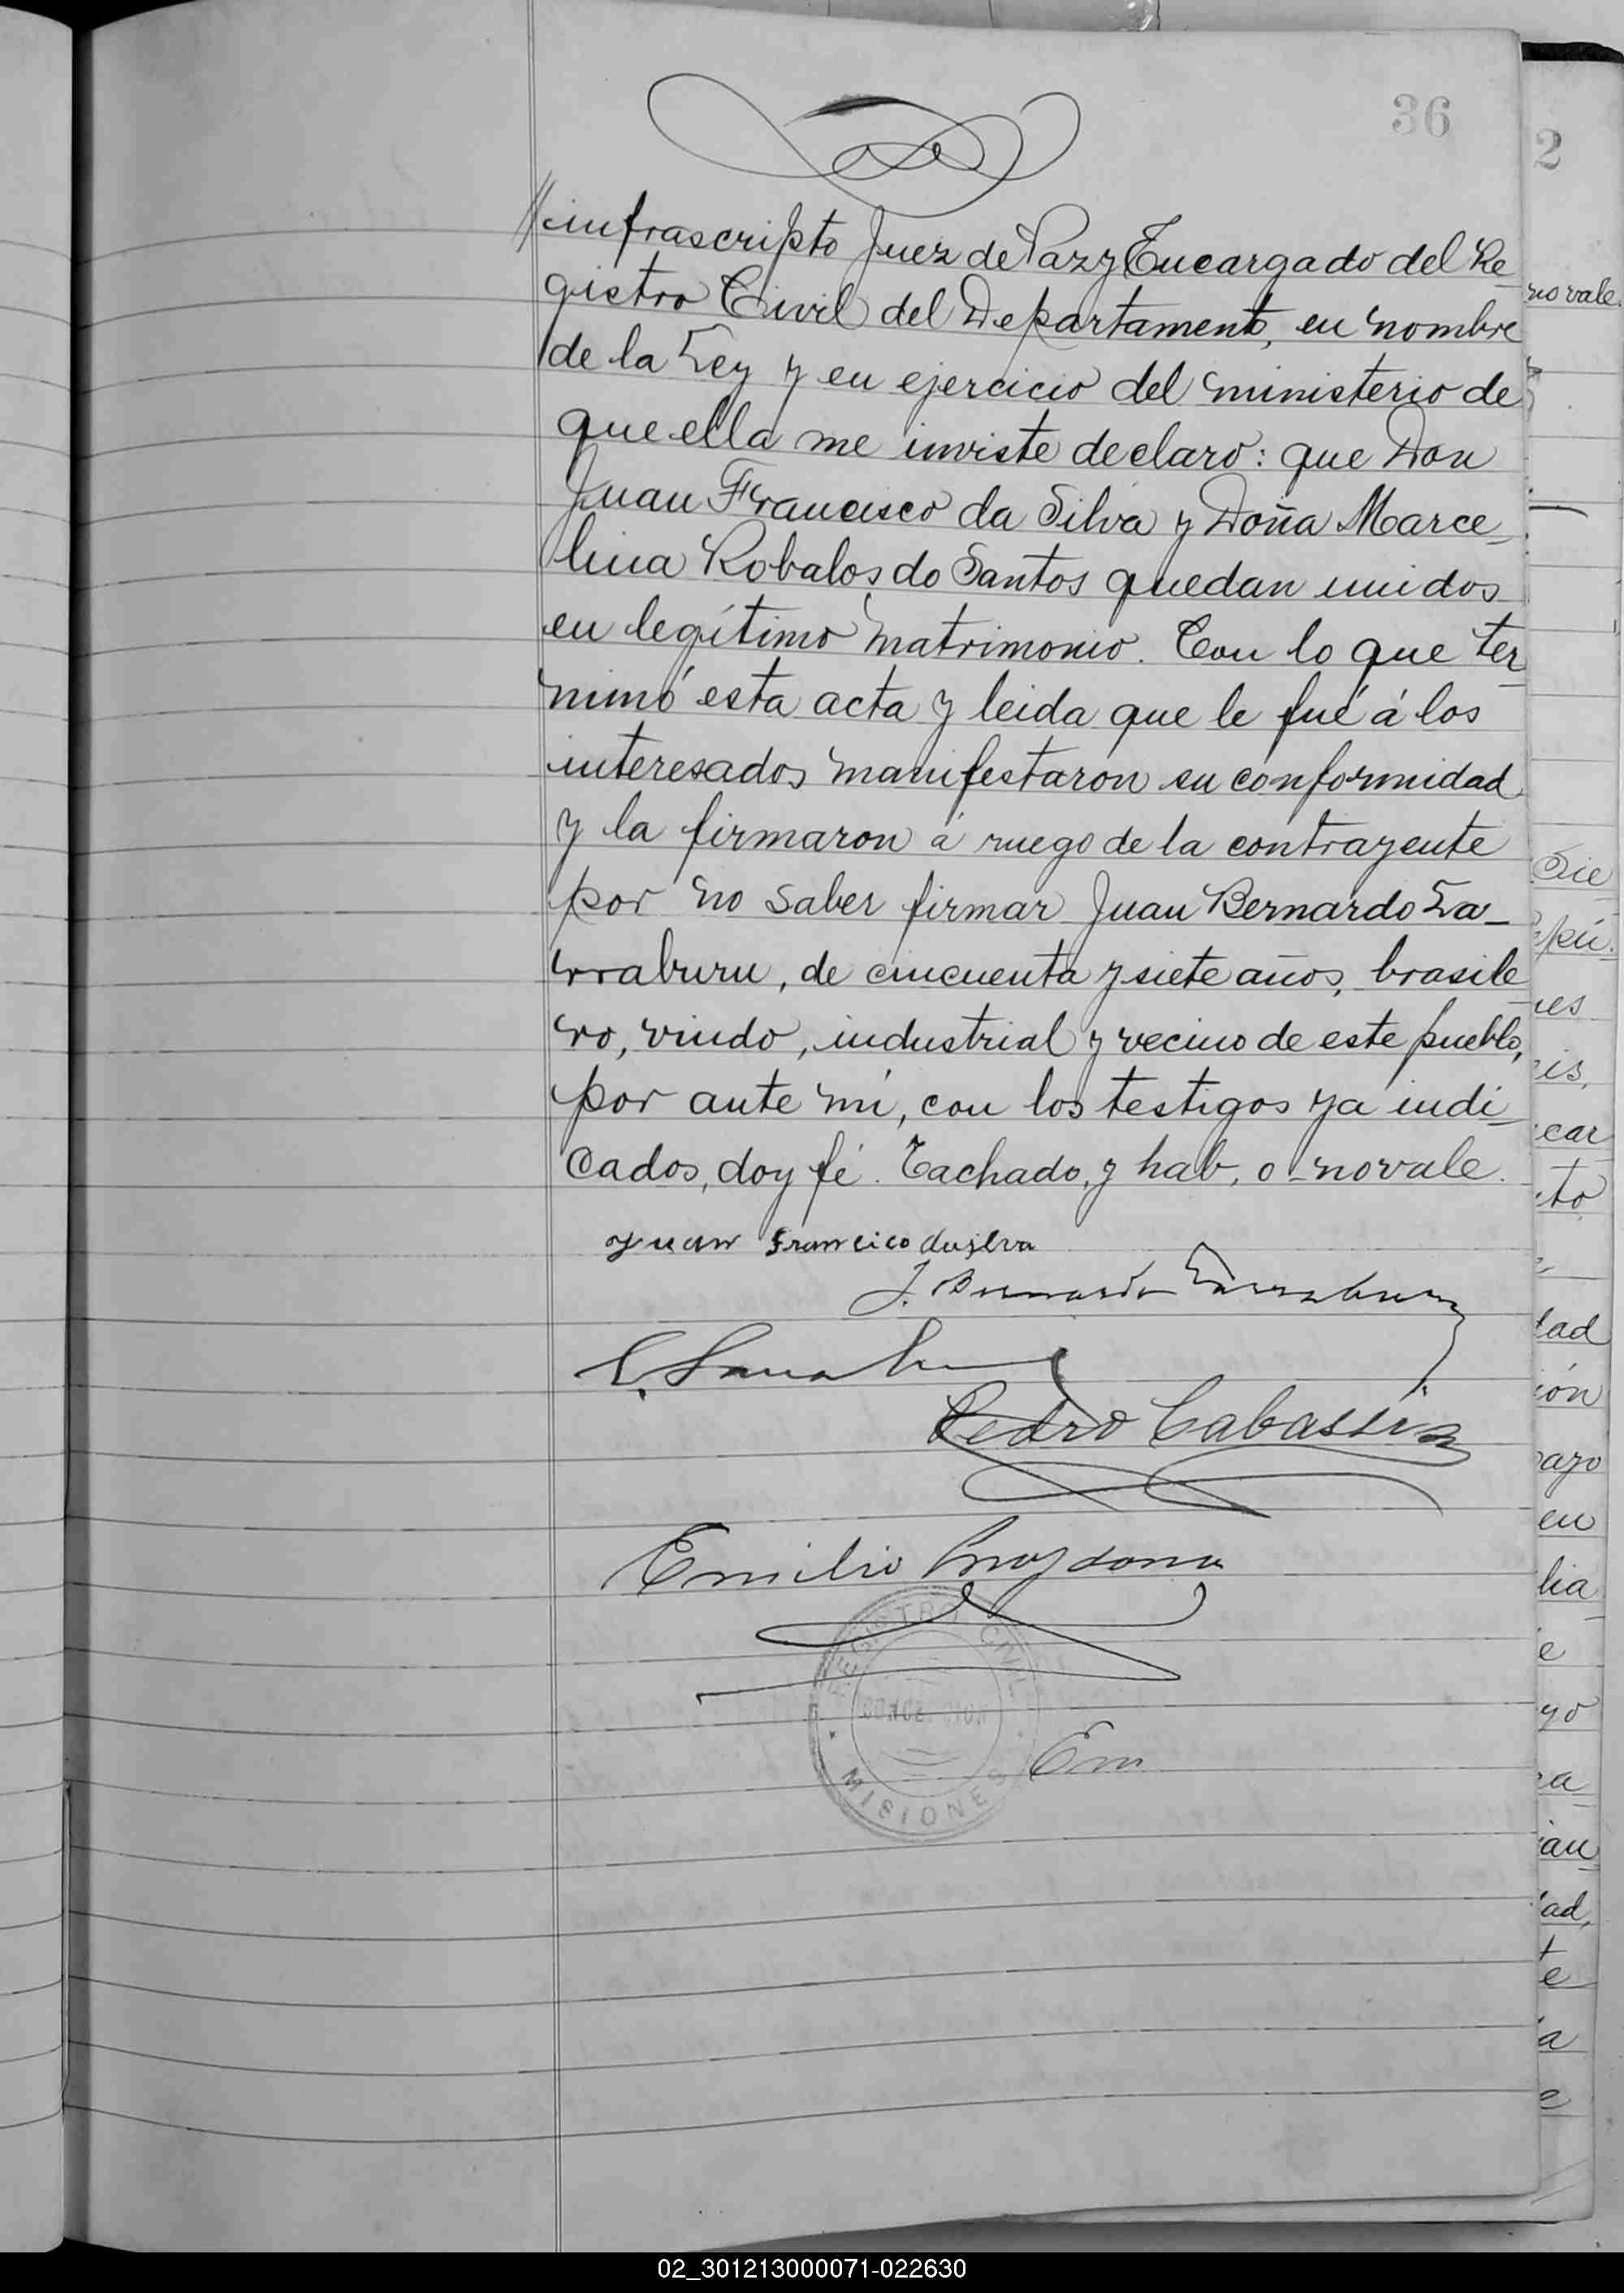 36
//infrascripto Juez de Paz y Encargado del Re-
gistro Civil del Departamento, en nombre
de la Ley y en ejercicio del ministerio de
que ella me inviste declaro: que Don
Juan Francisco da Silva y Doña Marce-
lina Robalos do Santos quedan unidos
en legítimo matrimonio. Con lo que ter-
minó esta acta y leida que le fué á los
interesados manifestaron su conformidad
y la firmaron á ruego de la contrayente
por no saber firmar Juan Bernardo La-
rraburu, de cincuenta y siete años, brasile-
ro, viudo, industrial y vecino de este pueblo,
por ante mí, con los testigos ya indi-
cados, doy fé. Tachado, y hab, o-no vale.
Juan Francico dasilva
J. Bernardo Larraburu
Pedro
Emilio
REGISTRO CIVIL
MISIONES
Em
2
no vale.
Sie
pú.
nes
cis,
car
to
dad
ión
payo
en
lia-
e
yo
ra-
ian-
dad,
te
la
e
02_301213000071-022630